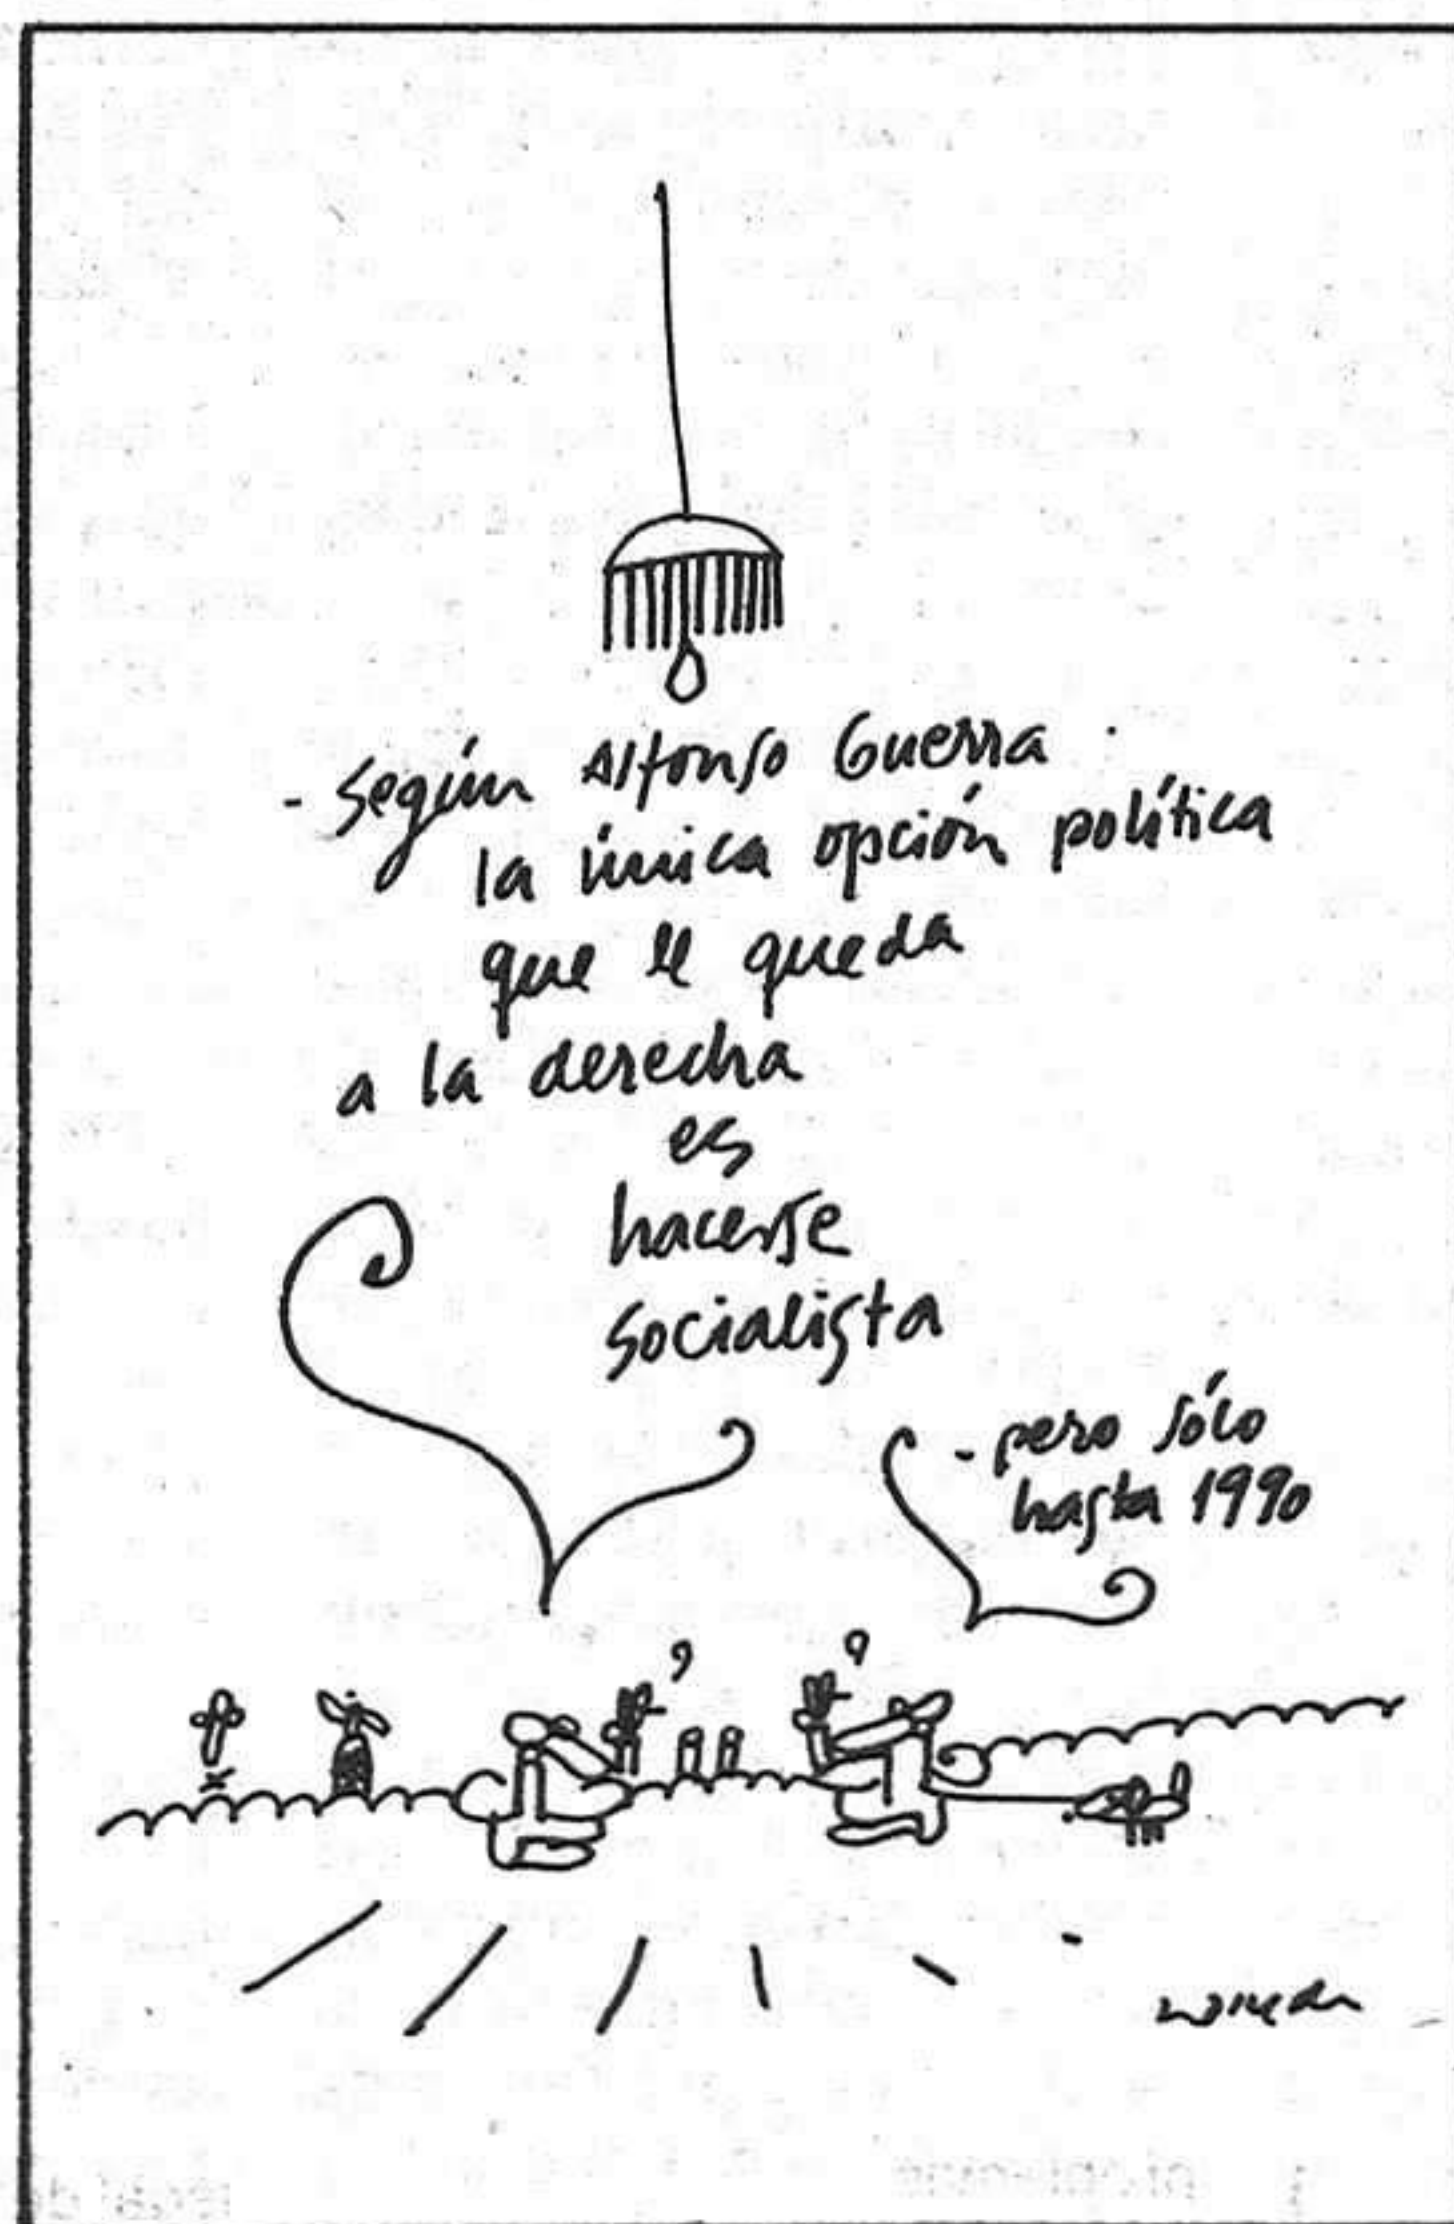 - Según Alfonso Guerra
la única opción política
que le queda
a la derecha
es
hacerse
socialista
- pero sólo
hasta 1990